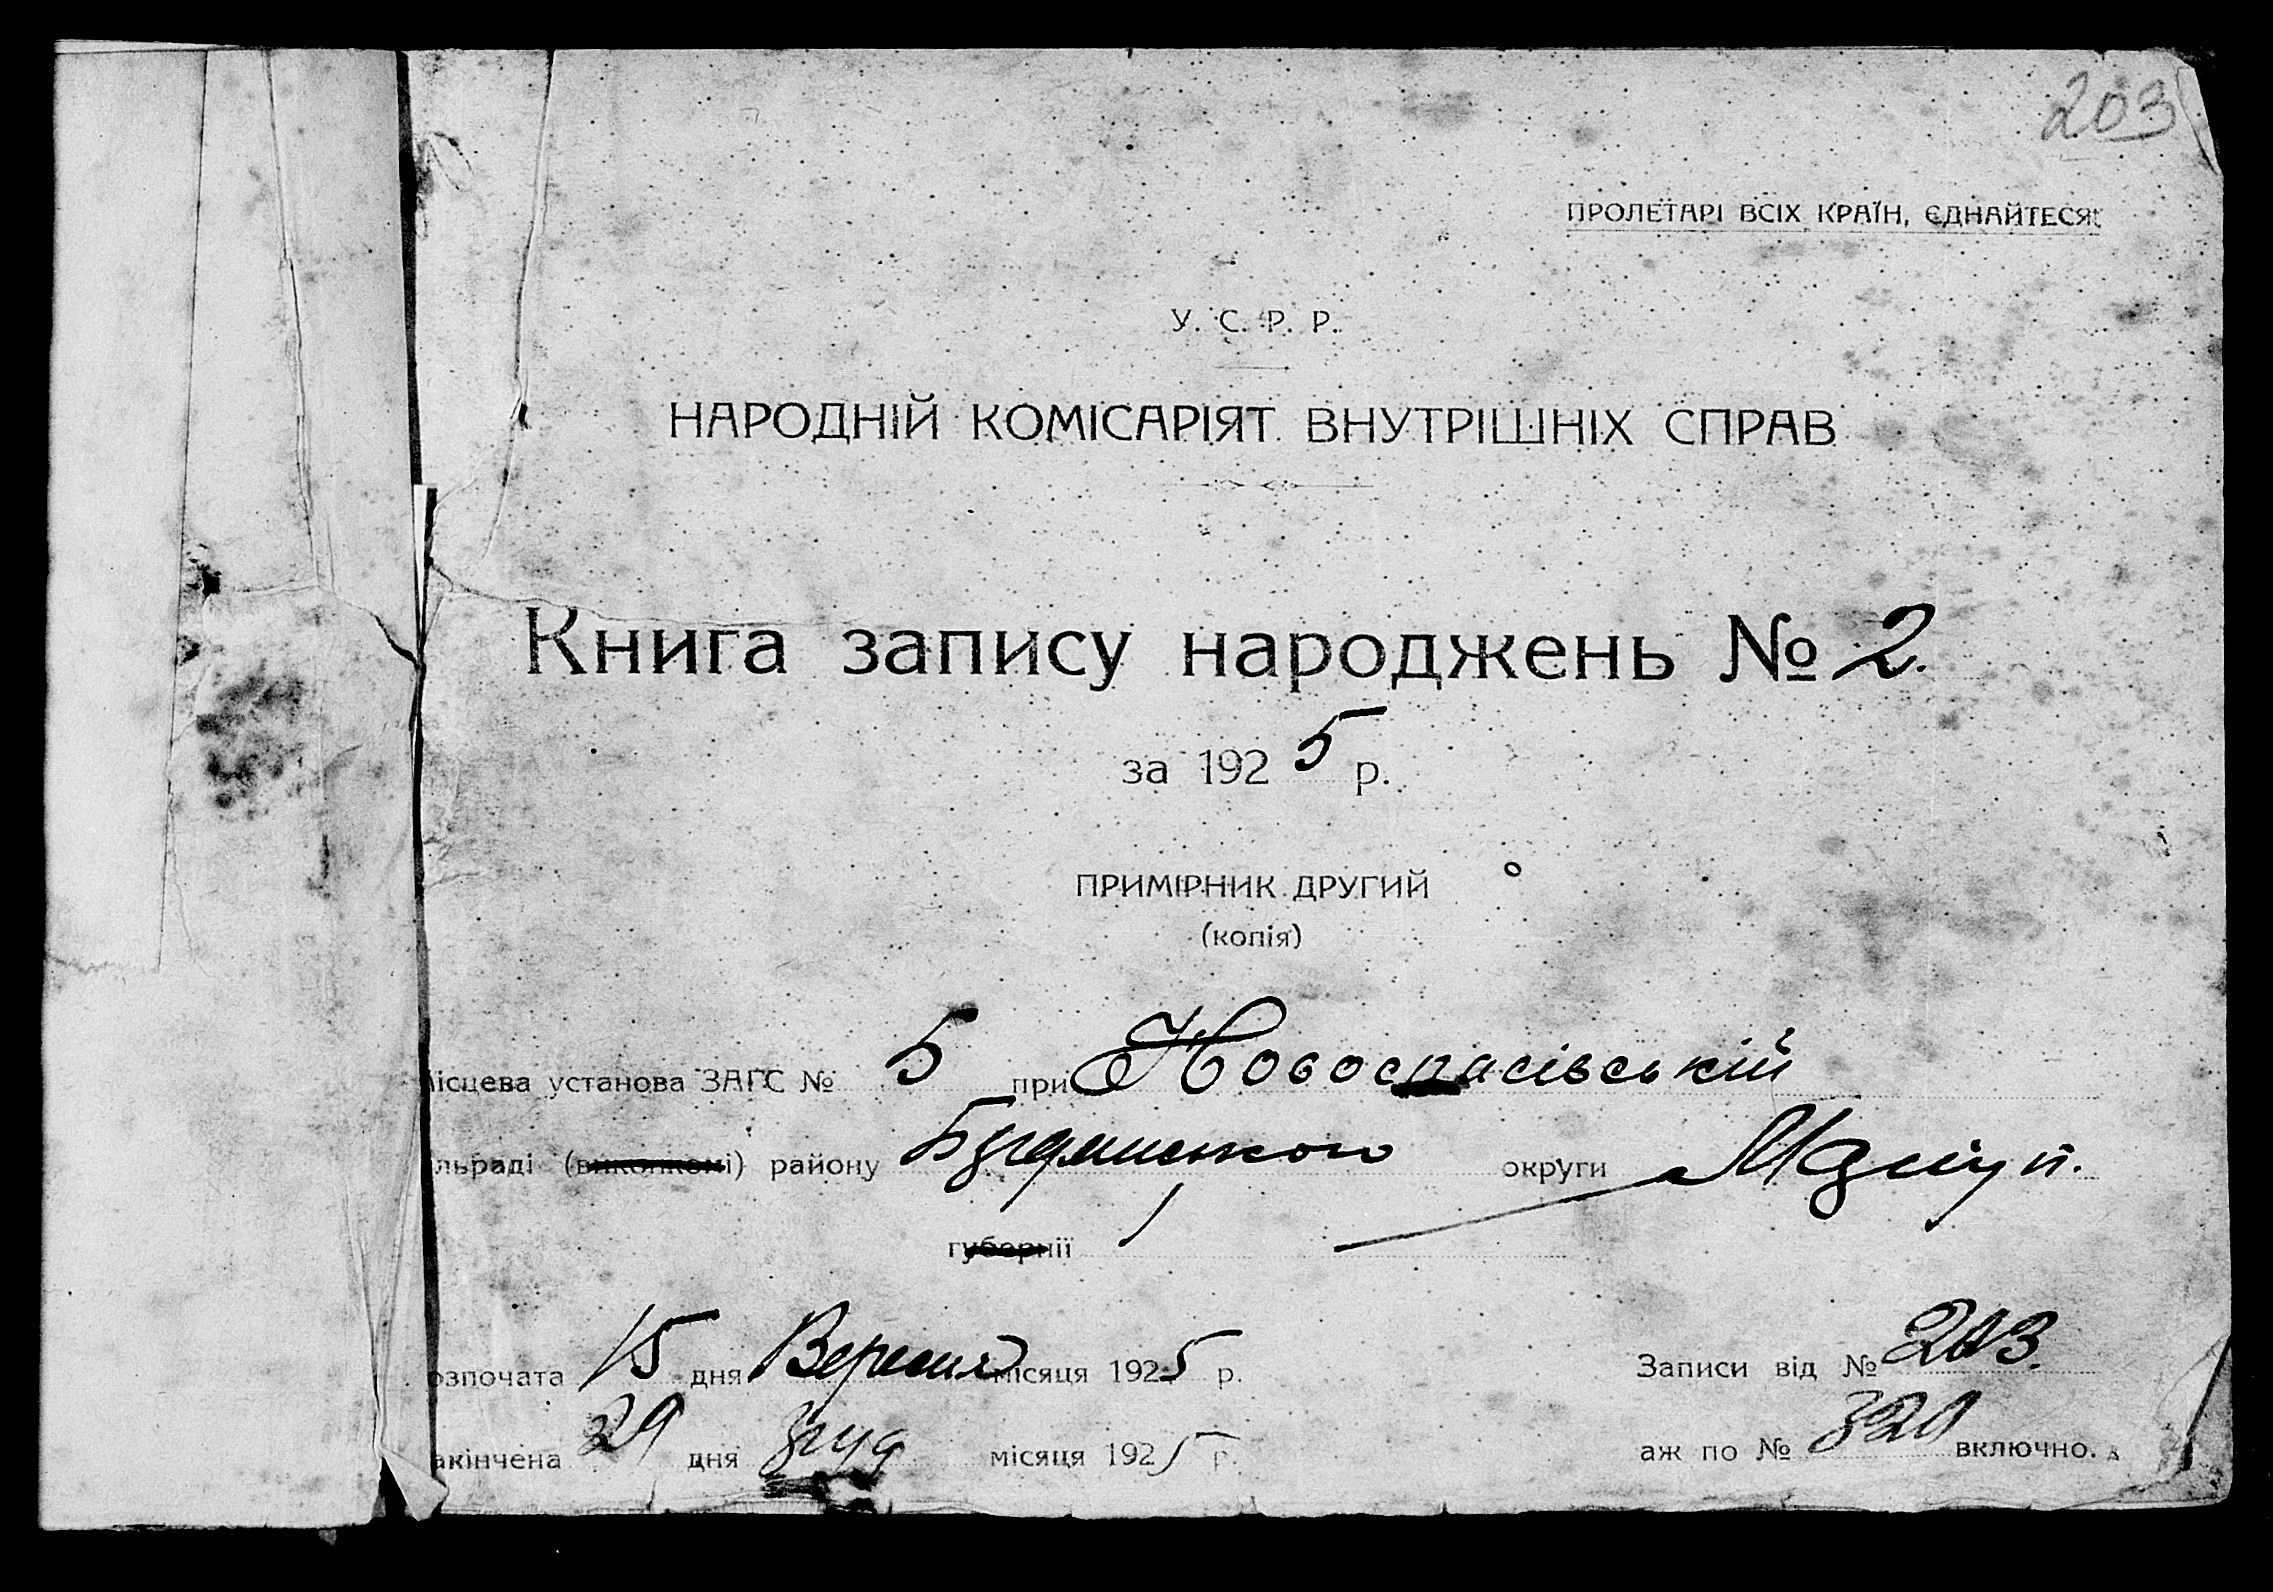 203
ПРОЛЕТАРІ ВСІХ КРАЇН, ЄДНАЙТЕСЯ!
У. С. Р. Р.
НАРОДНІЙ КОМІСАРІЯТ ВНУТРІШНІХ СПРАВ
Книга запису народжень № 2.
за 1925 р.
ПРИМІРНИК ДРУГИЙ
(копія)
ісцева установа ЗАГС № 5 при Новоспасівській
льраді (виконкомі) району округи Маріуп.
губернії
озпочата 15 дня Вересня місяця 1925 р.
Записи від № 203.
акінчена 29 дня груд місяця 1925 р.
аж по № 320 включно.